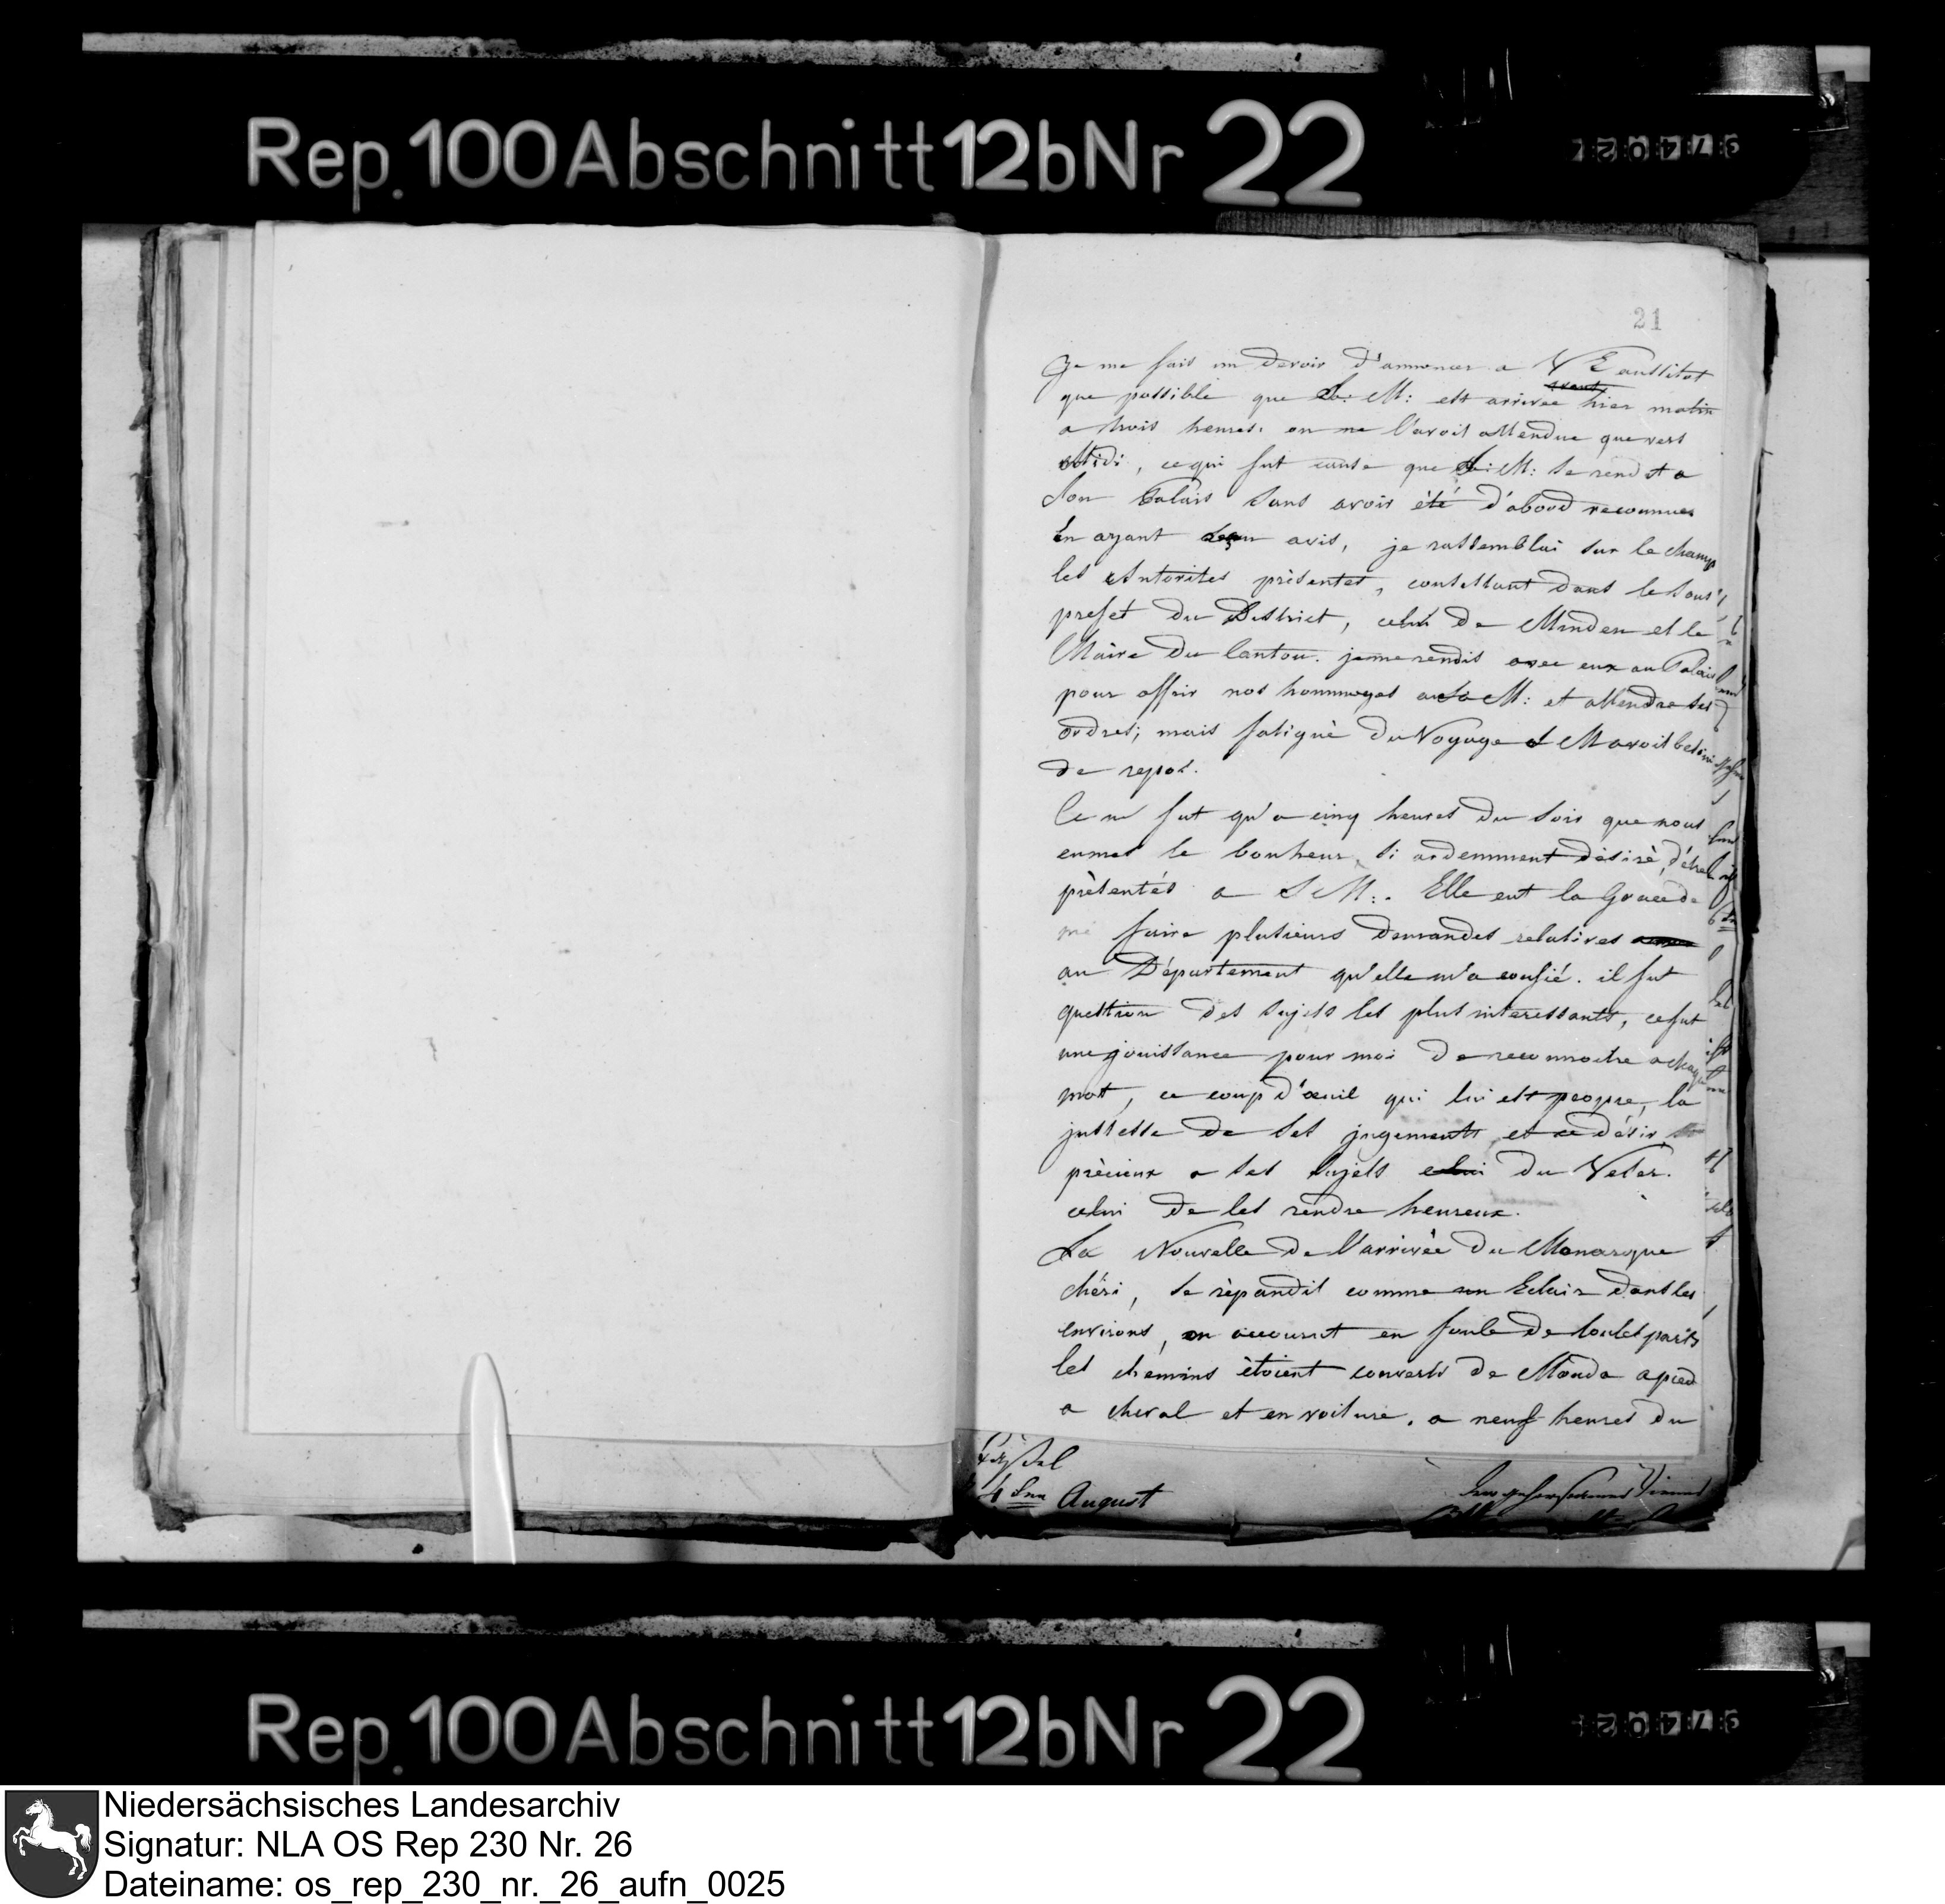 Rep. 100 Abschnitt 12b Nr 22
21
Je me fais un devoir d'annoncer a V E aussitot
que possible que Sa: M: est arrivée hier matin
a trois heures. on ne l'avoit attendue que vers
Midi, ce qui fut cause que S: M: se rendit a
Son Palais sans avoir été d'abord reconnue
En ayant reçu avis, je rassemblai sur le champ
les Autorites présentes, consistant dans le sous
prefet du District, celui de Minden et le
Maire du Canton. je me rendis avec eux au Palais
pour offrir nos hommages a Sa M: et attendre ses
ordres; mais fatigué du Voyage S M avoit besoin
de repos.
Ce ne fut qu'a cinq heures du soir que nous
eumes le bonheur, si ardemment désiré, d'être
présentés a S M:. Elle eut la Grace de
me faire plusieurs demandes relatives
au Département qu'elle m'a confié. il fut
question des sujets les plus interessants, ce fut
une jouissance pour moi de reconnoitre a chaque
mot, ce coup d'œuil qui lui est propre, la
justesse de ses jugements et ce désir
précieux a ses sujets celui du Veser.
celui de les rendre heureux.
La Nouvelle de l'arrivée du Monarque
chéri, se répandit comme un Eclair dans les
environs, on accourut en foule de toutes parts
les chemins étoient couverts de Monde a pied
a cheval et en voiture. a neuf heures du
August
Rep. 100 Abschnitt 12b Nr 22
Niedersächsisches Landesarchiv
Signatur: NLA OS Rep 230 Nr. 26
Dateiname: os_rep_230_nr._26_aufn_0025